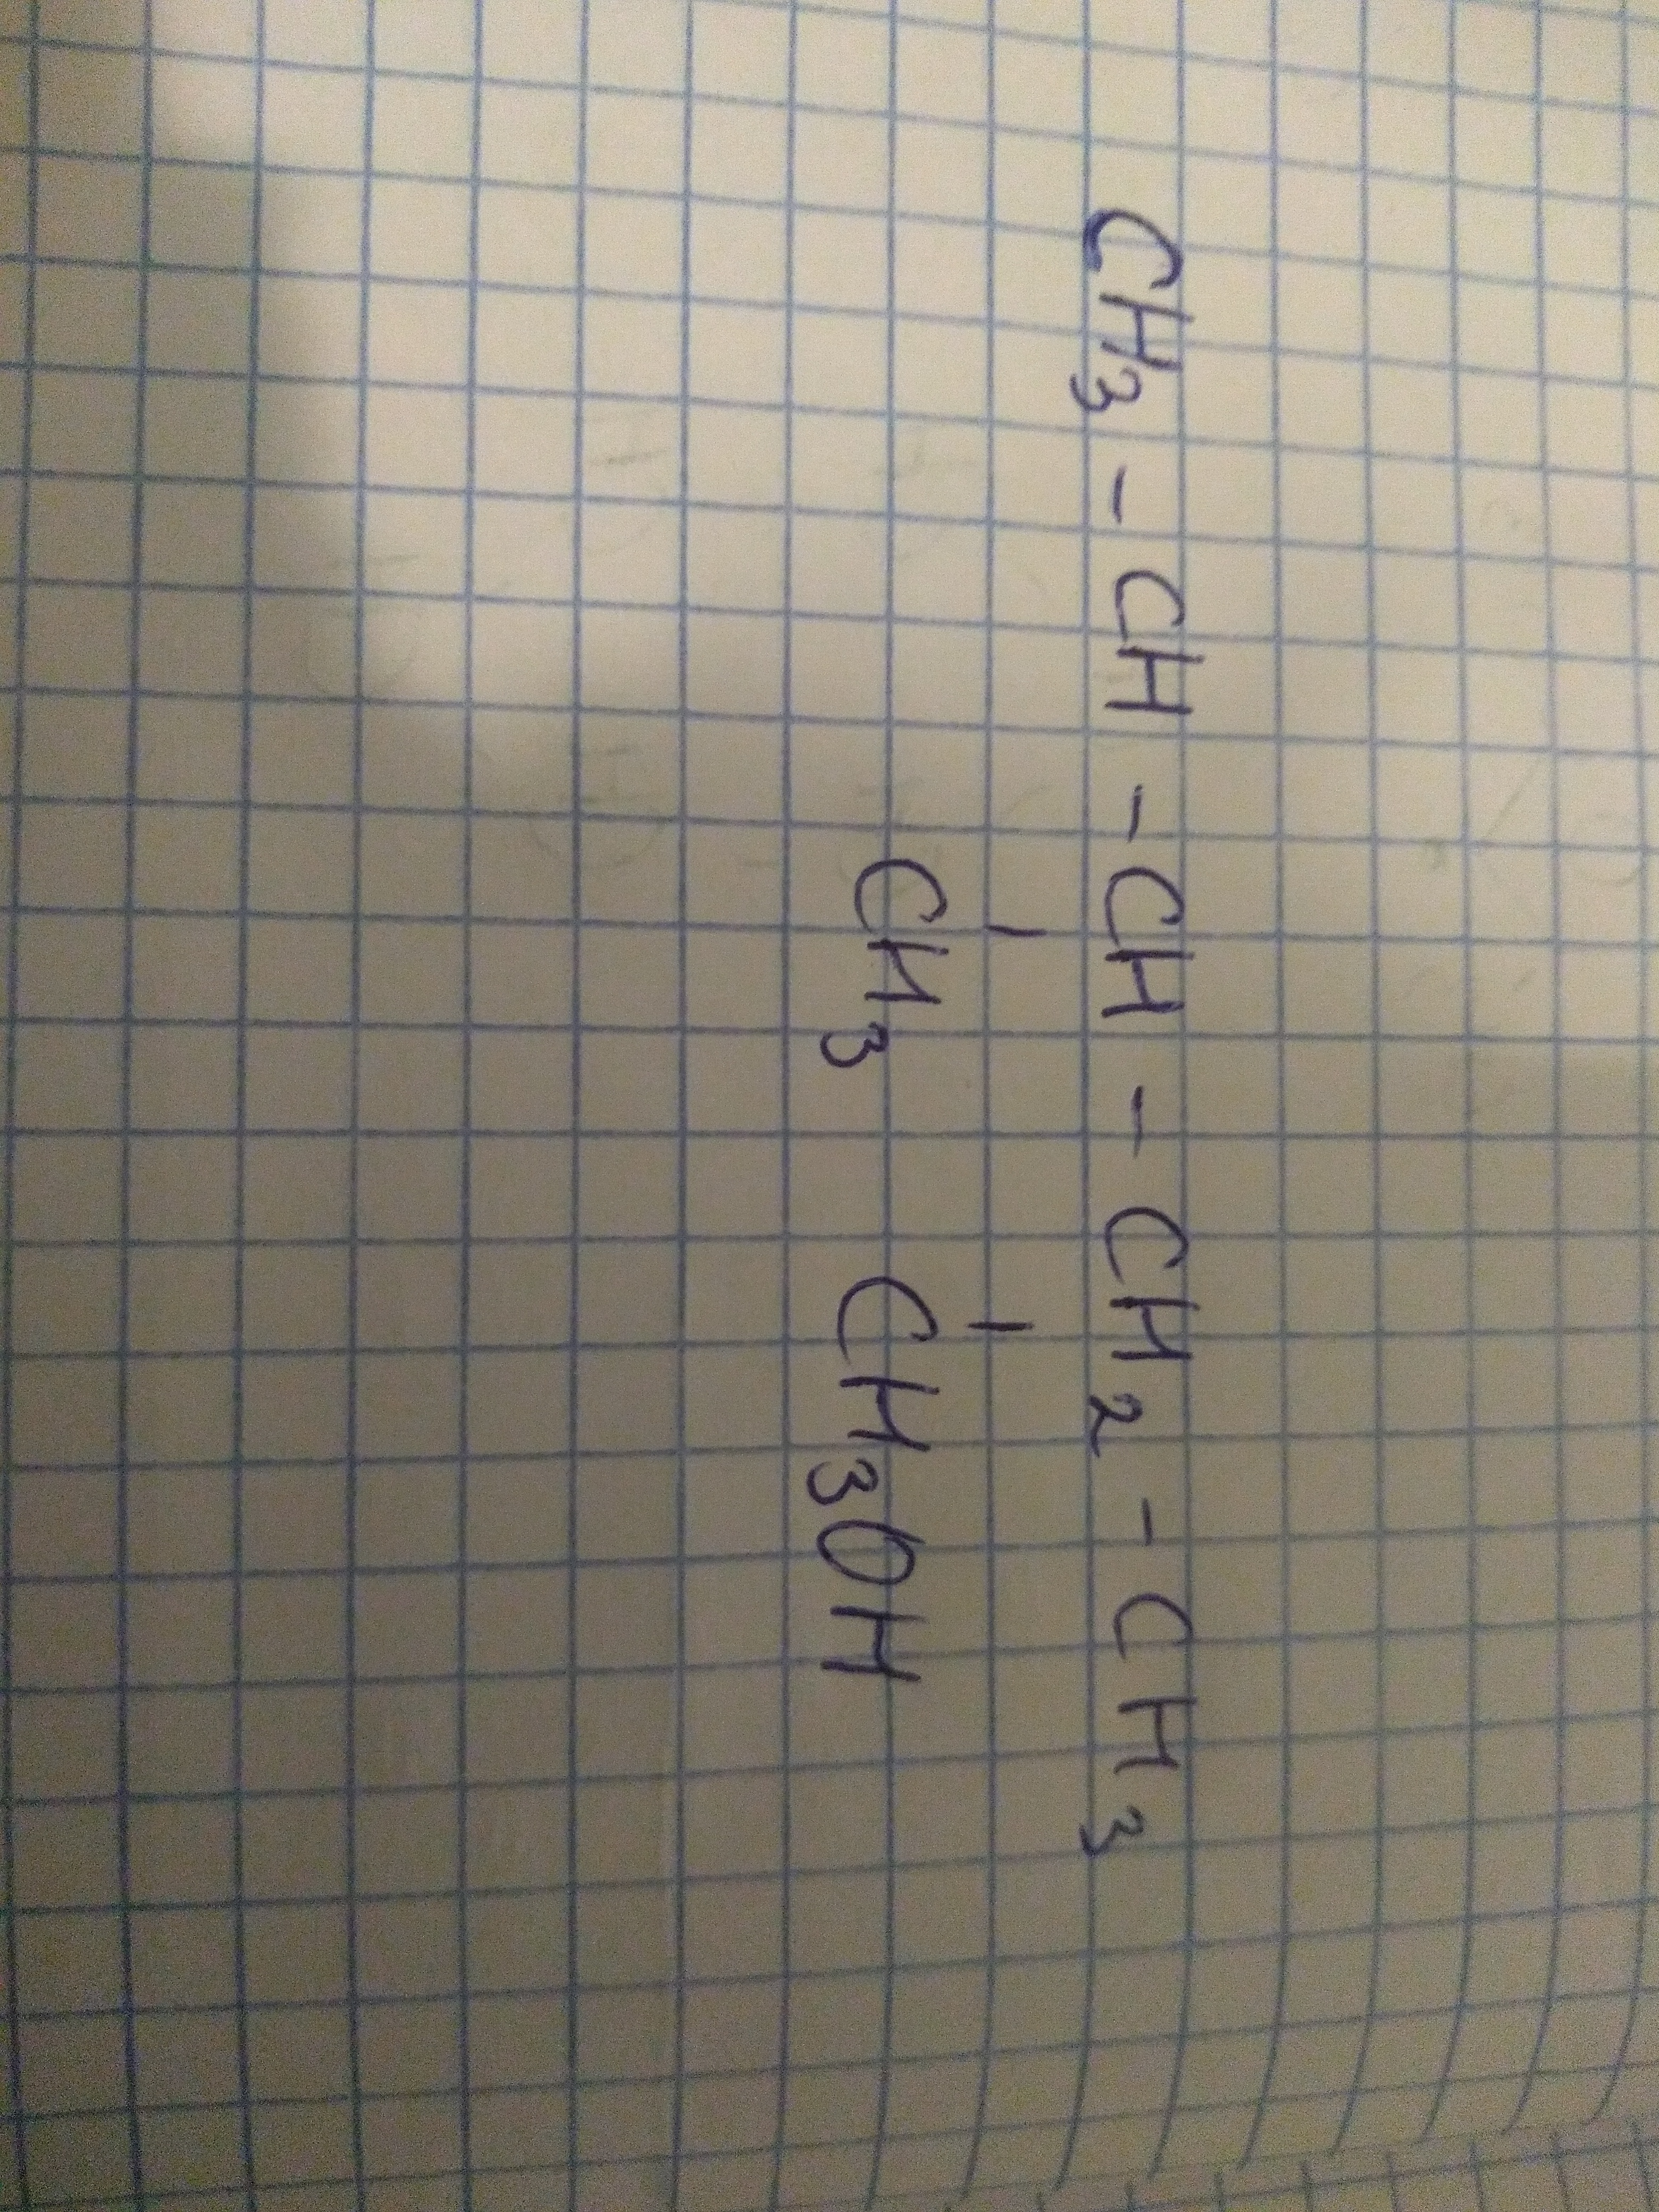 CH3 - CH - CH - CH2 - CH3
CH3 CH3OH